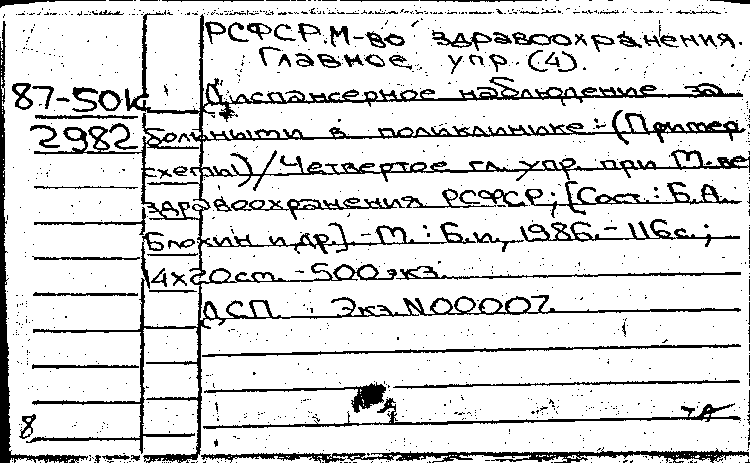 РСФСР. М-во здравоохранения.
Главное упр. (4).
87-50к Диспансерное наблюдение за
2982 больными в поликлинике:-(Пример.
схемы)/Четвертое гл. упр. при М-ве
здравоохранения РСФСР; [Сост.: Б.А.
Блохин и др.].-М.: Б.и., 1986.-116с.;
14х20см. -500 экз.
ДСП. Экз. N00007.
8